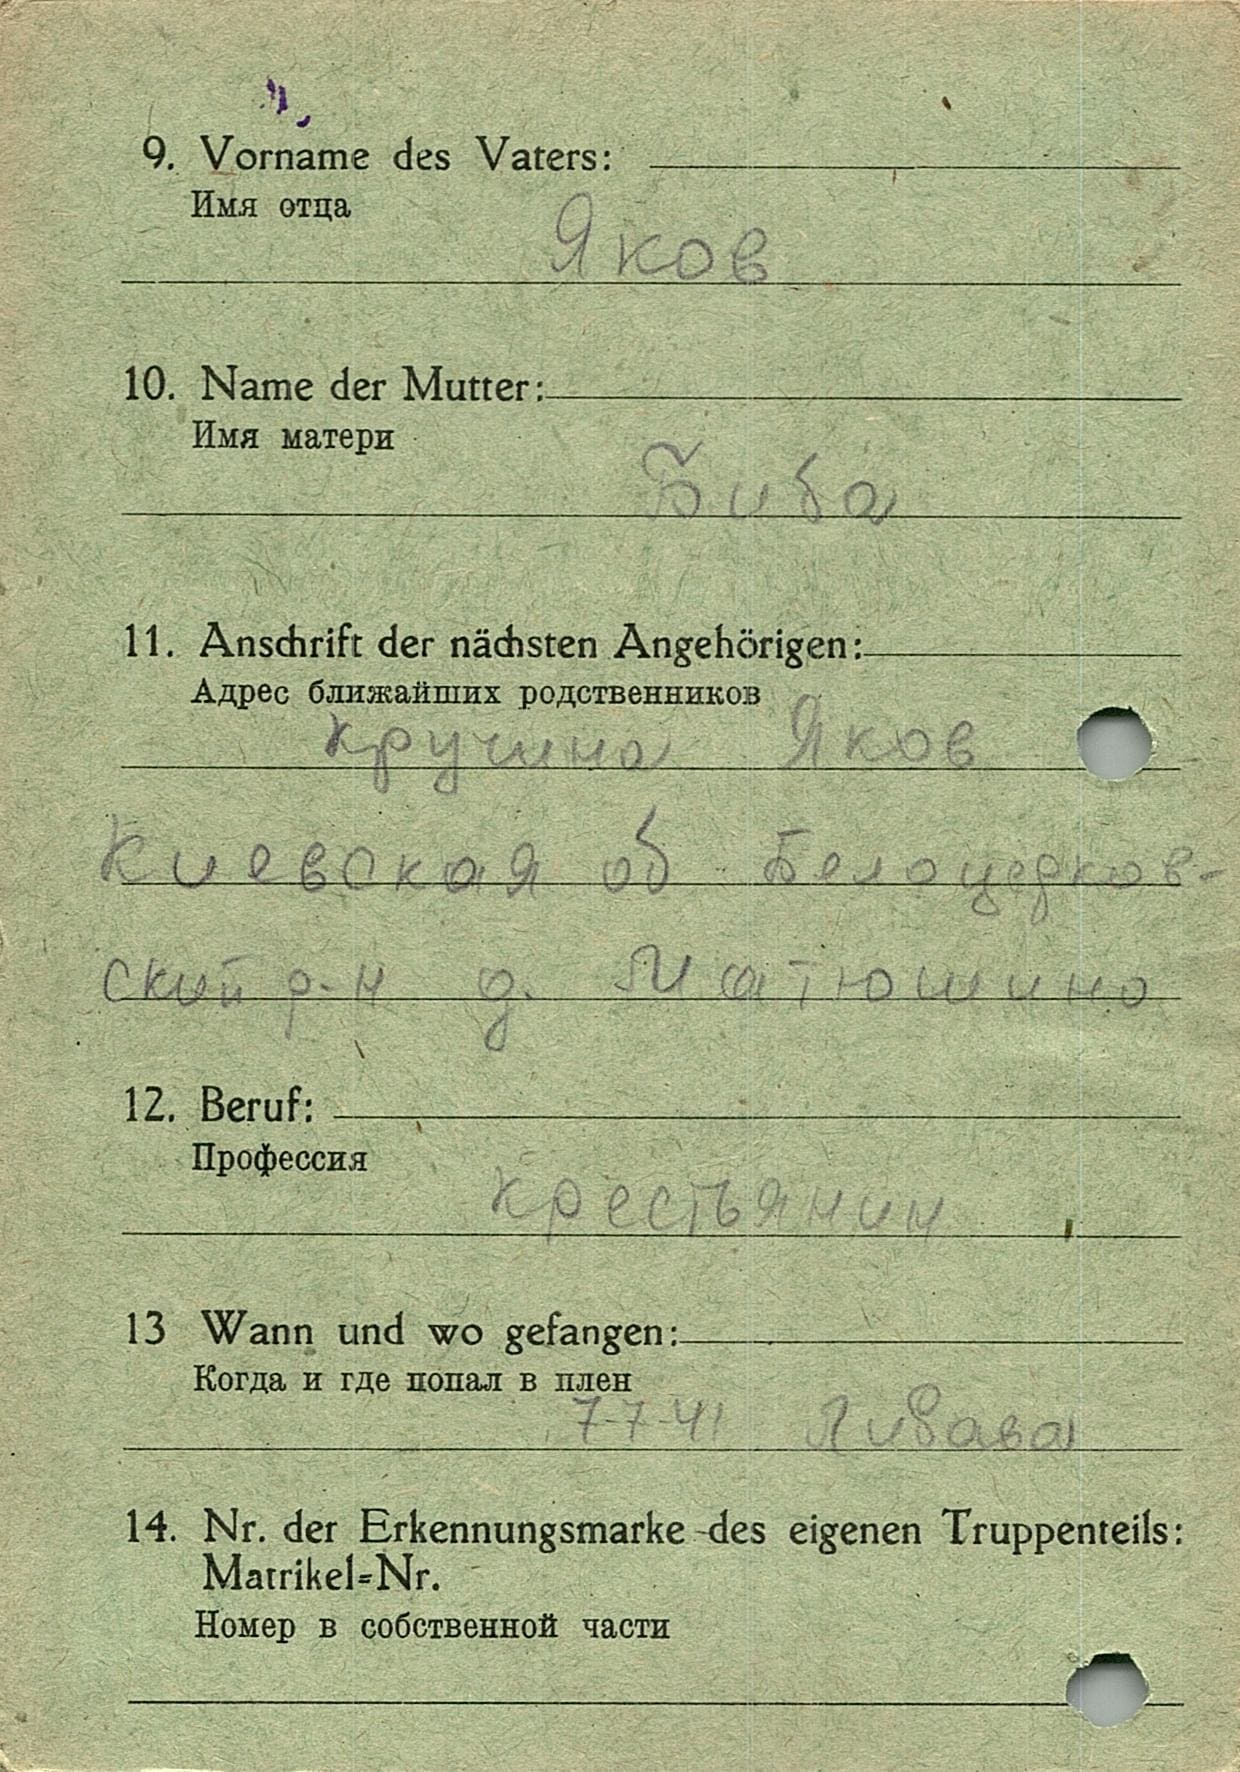 9. Vorname des Vaters:
Имя отца
Яков
10. Name der Mutter:
Имя матери
Биба
11. Anschrift der nächsten Angehörigen:
Адрес ближайших родственников
Кручина Яков
Киевская об Белоцерков-
ский р-н д. Матюшино
12. Beruf:
Профессия
крестьянин
13 Wann und wo gefangen:
Когда и где попал в плен
7-7-41 Либава
14. Nr. der Erkennungsmarke des eigenen Truppenteils:
Matrikel=Nr.
Номер в собственной части